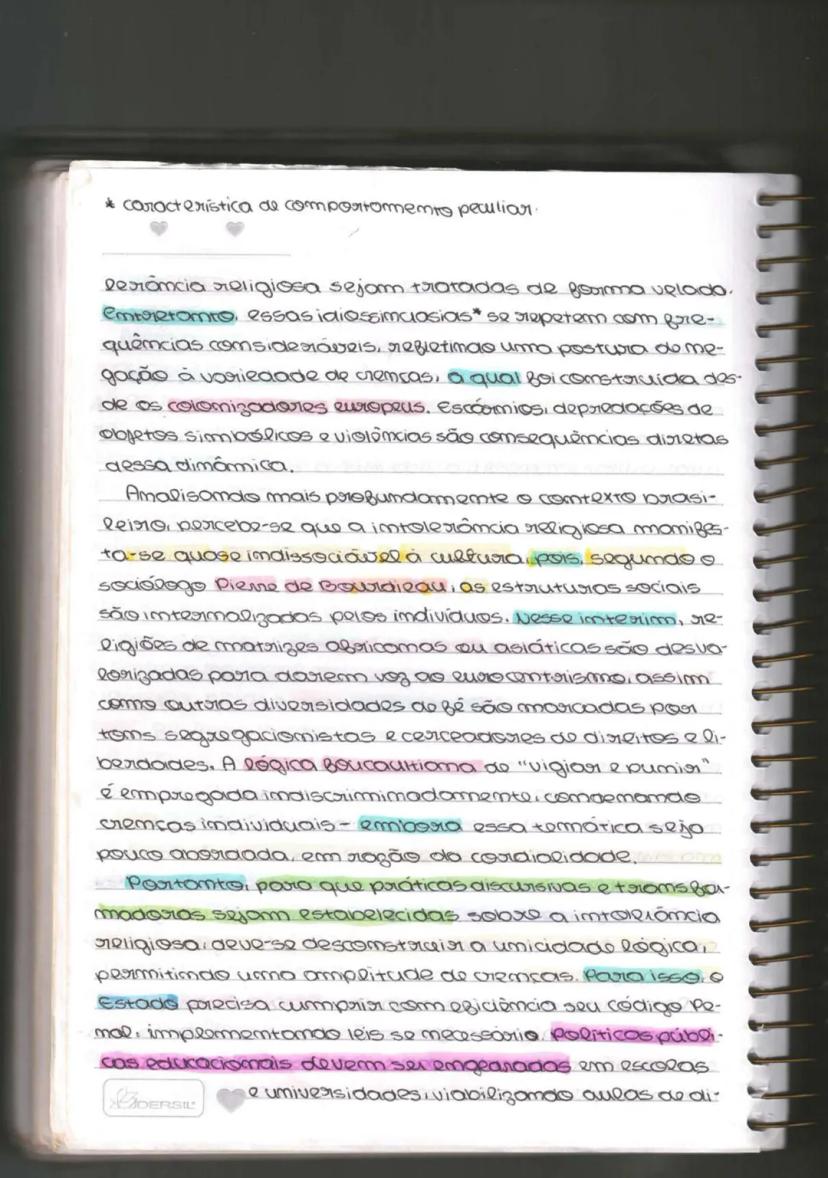 * característica de comportamento peculiar.
lerância religiosa sejam tratadas de forma velada.
Entretanto, essas idiossincrasias* se repetem com fre-
quências consideráveis, refletindo uma postura de ne-
gação à variedade de crenças, a qual foi construída des-
de os colonizadores europeus. Escárnios, depredações de
objetos simbólicos e violências são consequências diretas
dessa dinâmica.
Analisando mais profundamente o contexto brasi-
leiro, percebe-se que a intolerância religiosa manifes-
ta-se quase indissociável à cultura, pois, segundo o
sociólogo Pierre de Bourdieau, as estruturas sociais
são internalizadas pelos indivíduos. Nesse interim, re-
ligiões de matrizes africanas ou asiáticas são desva-
lorizadas para darem voz ao eurocentrismo, assim
como outras diversidades de fé são marcadas por
tons segregacionistas e cerceadores de direitos e li-
berdades. A lógica foucaultiana de "vigiar e punir"
é empregada indiscriminadamente, condenando
crenças individuais - embora essa temática seja
pouco abordada, em razão da cordialidade.
Portanto, para que práticas discursivas e transfor-
madoras sejam estabelecidas sobre a intolerância
religiosa, deve-se desconstruir a unicidade lógica,
permitindo uma amplitude de crenças. Para isso, o
Estado precisa cumprir com eficiência seu código Pe-
nal, implementando leis se necessário. Políticas públi-
cas educacionais devem ser engendradas em escolas
e universidades, viabilizando aulas de di-